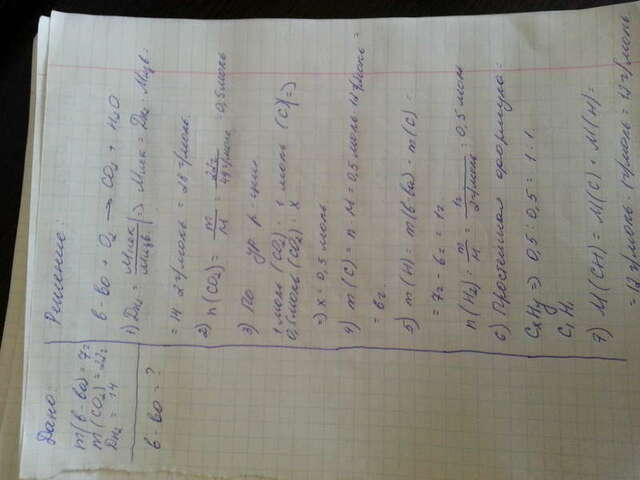 Дано:
m(в-ва) = 7г
m(CO₂) = 22г
Dн₂ = 14
в-во = ?
Решение:
в-во + O₂ → CO₂ + H₂O
1) Dн₂ = Mиск / Mизв. |⇒ Mиск = Dн₂ · Mизв. =
= 14 · 2 г/моль = 28 г/моль.
2) n(CO₂) = m/M = 22г / 44г/моль = 0,5 моль
3) По ур. р-ции
1 моль (CO₂) : 1 моль (C) |⇒
0,5 моль (CO₂) : x
⇒ x = 0,5 моль
4) m(C) = n · M = 0,5 моль · 12 г/моль =
= 6г.
5) m(H) = m(в-ва) - m(C) =
= 7г - 6г = 1г.
n(H₂) = m/M = 1г / 2г/моль = 0,5 моль
6) Простейшая формула:
CxHy ⇒ 0,5 : 0,5 = 1 : 1.
C₁H₁
7) M(CH) = M(C) + M(H) =
= 12 г/моль + 1 г/моль = 13 г/моль